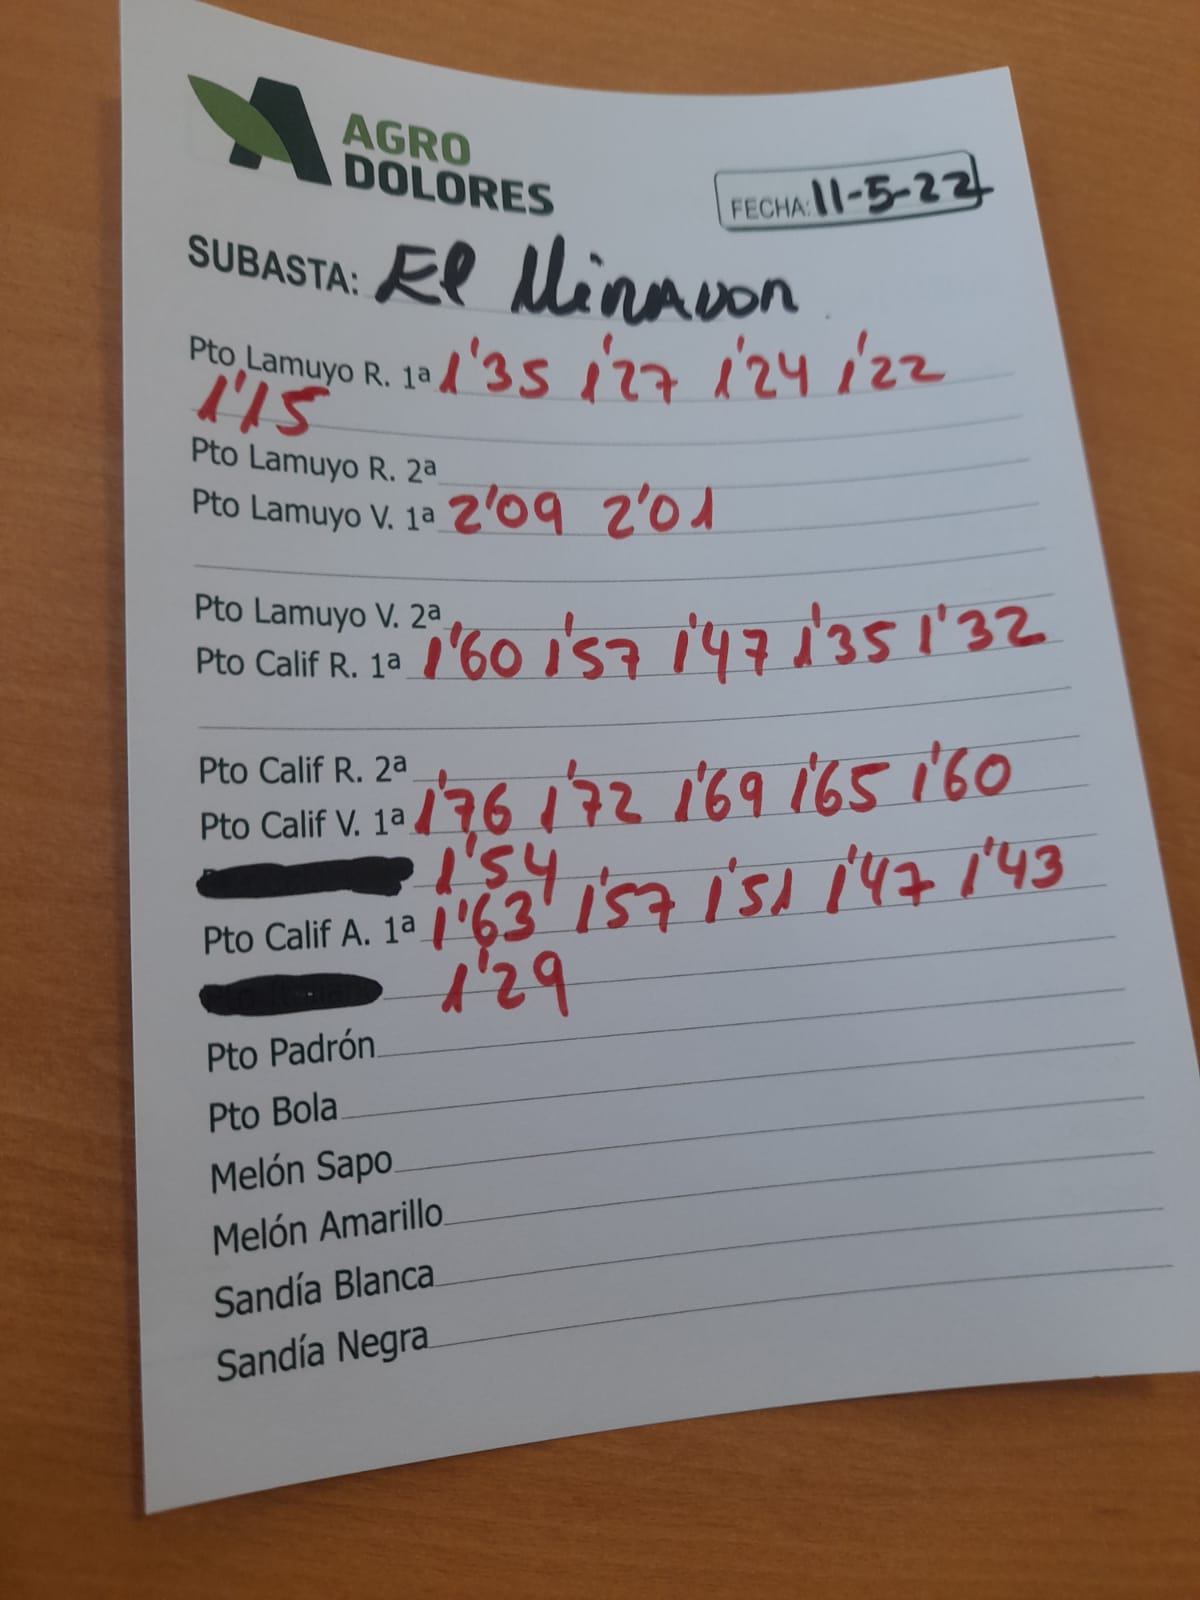 AGRO
DOLORES
FECHA: 11-5-22
SUBASTA: El Mirador
Pto Lamuyo R. 1ª 1'35 1'27 1'24 1'22
1'15
Pto Lamuyo R. 2ª
Pto Lamuyo V. 1ª 2'09 2'01
Pto Lamuyo V. 2ª
Pto Calif R. 1ª 1'60 1'57 1'47 1'35 1'32
Pto Calif R. 2ª
Pto Calif V. 1ª 1'76 1'72 1'69 1'65 1'60
1'54
Pto Calif A. 1ª 1'63 1'57 1'51 1'47 1'43
1'29
Pto Padrón
Pto Bola
Melón Sapo
Melón Amarillo
Sandía Blanca
Sandía Negra